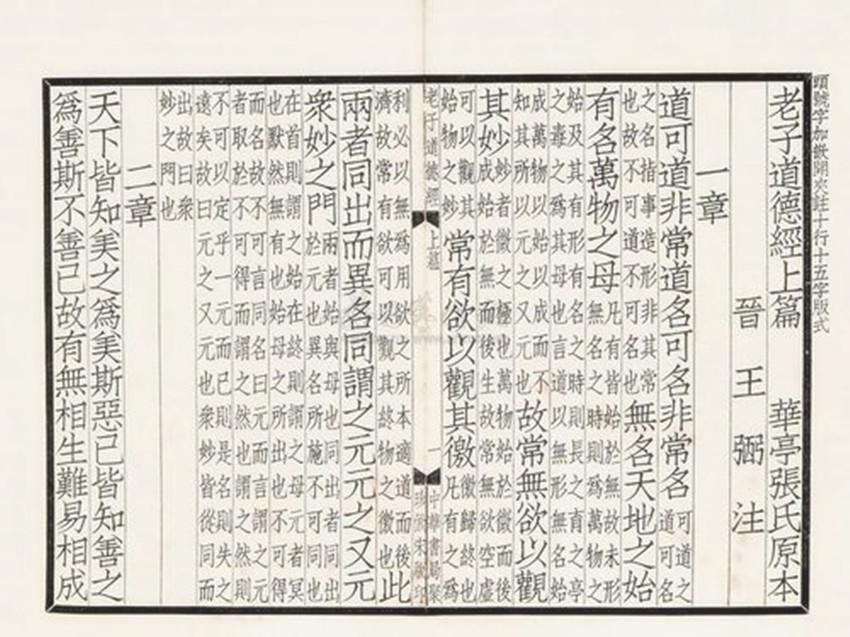 頭號字加嵌開夾註十行十五字版式
老子道德經上篇 華亭張氏原本
晉 王弼 注
一章
道可道非常道名可名非常名可道之道可名
之名指事造形非其常也故不可道不可名也無名天地之始
有名萬物之母凡有皆始於無故未形無名之時則為萬物之
始及其有形有名之時則長之育之亭之毒之為其母也言道以無形無名始
成萬物以始以成而不知其所以元之又元也故常無欲以觀
其妙妙者微之極也萬物始於微而後成始於無而後生故常無欲空虛
可以觀其始物之妙常有欲以觀其徼徼歸終也凡有之為
老子道德經 上篇 一 中華書局聚
珍倣宋版印
利必以無為用欲之所本適道而後濟故常有欲可以觀其終物之徼也此
兩者同出而異名同謂之元元之又元
眾妙之門兩者始與母也同出者同出於元也異名所施不可同也
在首則謂之始在終則謂之母元者冥也默然無有也始母之所出也不可得
而名故不可言同名曰元而言謂之元者取於不可得而謂之然也謂之然則
不可以定乎一元而已則是名則失之遠矣故曰元之又元也眾妙皆從同而
出故曰眾妙之門也
二章
天下皆知美之為美斯惡已皆知善之
為善斯不善已故有無相生難易相成